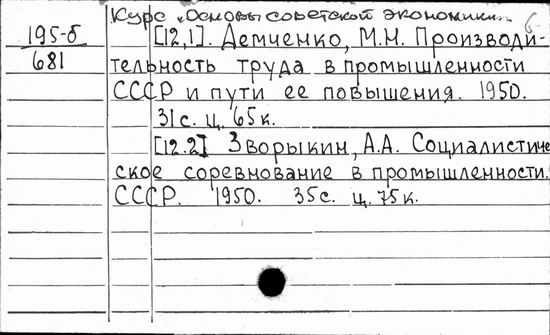 Курс „Основы советской экономики“.
195-б
681
[12,1]. Демченко, М.Н. Производи-
тельность труда в промышленности
СССР и пути ее повышения. 1950.
31с. ц. 65к.
[12.2] Зворыкин, А.А. Социалистиче
ское соревнование в промышленности.
СССР. 1950. 35с. ц. 75к.